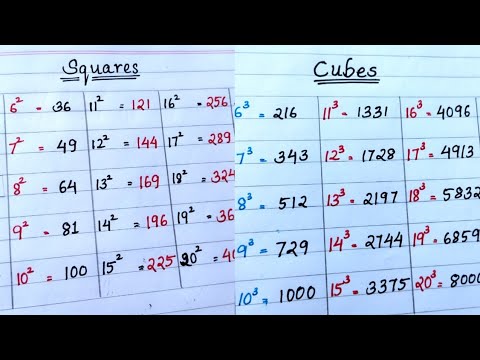 Squares
6² = 36 11² = 121 16² = 256
7² = 49 12² = 144 17² = 289
8² = 64 13² = 169 18² = 324
9² = 81 14² = 196 19² = 36
10² = 100 15² = 225 20² = 40
Cubes
6³ = 216 11³ = 1331 16³ = 4096
7³ = 343 12³ = 1728 17³ = 4913
8³ = 512 13³ = 2197 18³ = 5832
9³ = 729 14³ = 2744 19³ = 6859
10³ = 1000 15³ = 3375 20³ = 8000